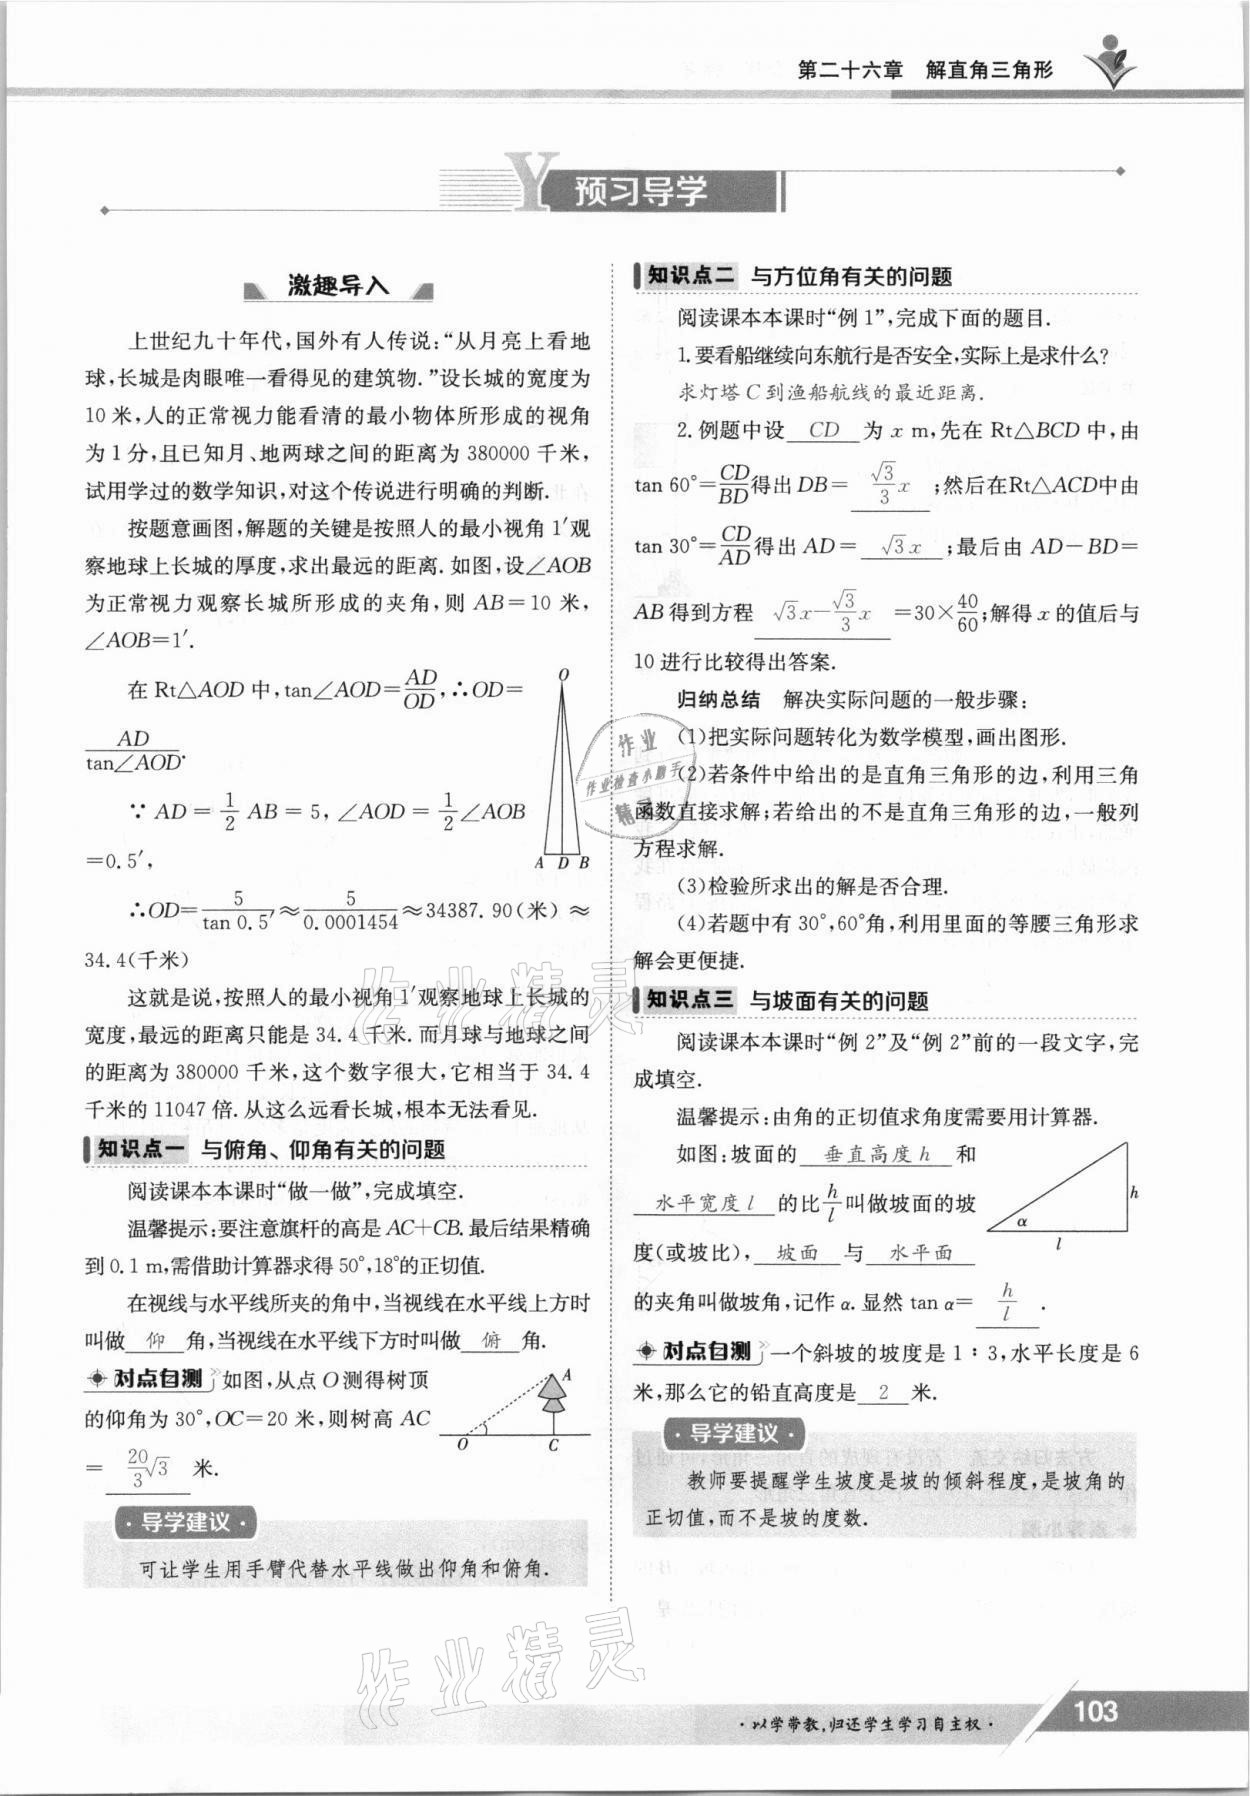 第二十六章 解直角三角形
Y 预习导学
激趣导入
上世纪九十年代,国外有人传说:“从月亮上看地
球,长城是肉眼唯一看得见的建筑物.”设长城的宽度为
10 米,人的正常视力能看清的最小物体所形成的视角
为 1 分,且已知月、地两球之间的距离为 380000 千米,
试用学过的数学知识,对这个传说进行明确的判断.
按题意画图,解题的关键是按照人的最小视角 1′观
察地球上长城的厚度,求出最远的距离. 如图,设∠AOB
为正常视力观察长城所形成的夹角,则 AB=10 米,
∠AOB=1′.
在 Rt△AOD 中,tan∠AOD=AD/OD,∴OD=
AD/tan∠AOD.
∵ AD = 1/2 AB = 5, ∠AOD = 1/2∠AOB
=0.5′,
∴OD=5/tan 0.5′≈5/0.0001454≈34387.90(米)≈
34.4(千米)
O
A D B
这就是说,按照人的最小视角 1′观察地球上长城的
宽度,最远的距离只能是 34.4 千米. 而月球与地球之间
的距离为 380000 千米,这个数字很大,它相当于 34.4
千米的 11047 倍. 从这么远看长城,根本无法看见.
知识点一 与俯角、仰角有关的问题
阅读课本本课时“做一做”,完成填空.
温馨提示:要注意旗杆的高是 AC+CB. 最后结果精确
到 0.1 m,需借助计算器求得 50°,18°的正切值.
在视线与水平线所夹的角中,当视线在水平线上方时
叫做 仰 角,当视线在水平线下方时叫做 俯 角.
对点自测 如图,从点 O 测得树顶
的仰角为 30°,OC=20 米,则树高 AC
= 20/3√3 米.
A
O C
·导学建议·
可让学生用手臂代替水平线做出仰角和俯角.
知识点二 与方位角有关的问题
阅读课本本课时“例 1”,完成下面的题目.
1. 要看船继续向东航行是否安全,实际上是求什么?
求灯塔 C 到渔船航线的最近距离.
2. 例题中设 CD 为 x m,先在 Rt△BCD 中,由
tan 60°=CD/BD得出 DB= √3/3 x ;然后在Rt△ACD中由
tan 30°=CD/AD得出 AD= √3x ;最后由 AD-BD=
AB 得到方程 √3x-√3/3 x =30×40/60;解得 x 的值后与
10 进行比较得出答案.
归纳总结 解决实际问题的一般步骤:
(1)把实际问题转化为数学模型,画出图形.
(2)若条件中给出的是直角三角形的边,利用三角
函数直接求解;若给出的不是直角三角形的边,一般列
方程求解.
(3)检验所求出的解是否合理.
(4)若题中有 30°,60°角,利用里面的等腰三角形求
解会更便捷.
知识点三 与坡面有关的问题
阅读课本本课时“例 2”及“例 2”前的一段文字,完
成填空.
温馨提示:由角的正切值求角度需要用计算器.
如图:坡面的 垂直高度 h 和
水平宽度 l 的比h/l叫做坡面的坡
度(或坡比), 坡面 与 水平面
的夹角叫做坡角,记作 α. 显然 tan α= h/l .
h
α
l
对点自测 一个斜坡的坡度是 1∶3,水平长度是 6
米,那么它的铅直高度是 2 米.
·导学建议·
教师要提醒学生坡度是坡的倾斜程度,是坡角的
正切值,而不是坡的度数.
作业
作业检查小助手
精灵
作业精灵
作业精灵
·以学带教,归还学生学习自主权·
103